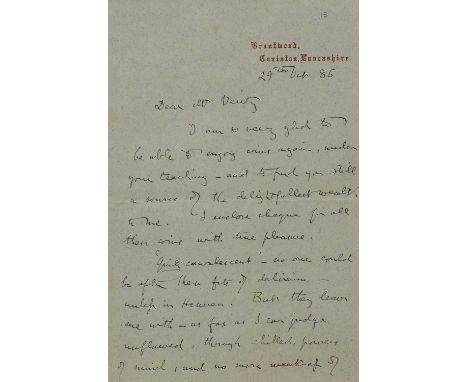 Brantwood,
Coniston, Lancashire.
29th Oct 86
Dear Mr Verity
I am so very glad to
be able to enjoy coins again, under
your teaching - and to find you still
a source of the delightfullest wealth
to me. I enclose cheque for all
these coins with true pleasure.
'Quite convalescent' - no one could
be after these fits of delirium
unless in Heaven. But they leave
me with - as far as I can judge
unflawed, though chilled, powers
of mind, and no more weakness of